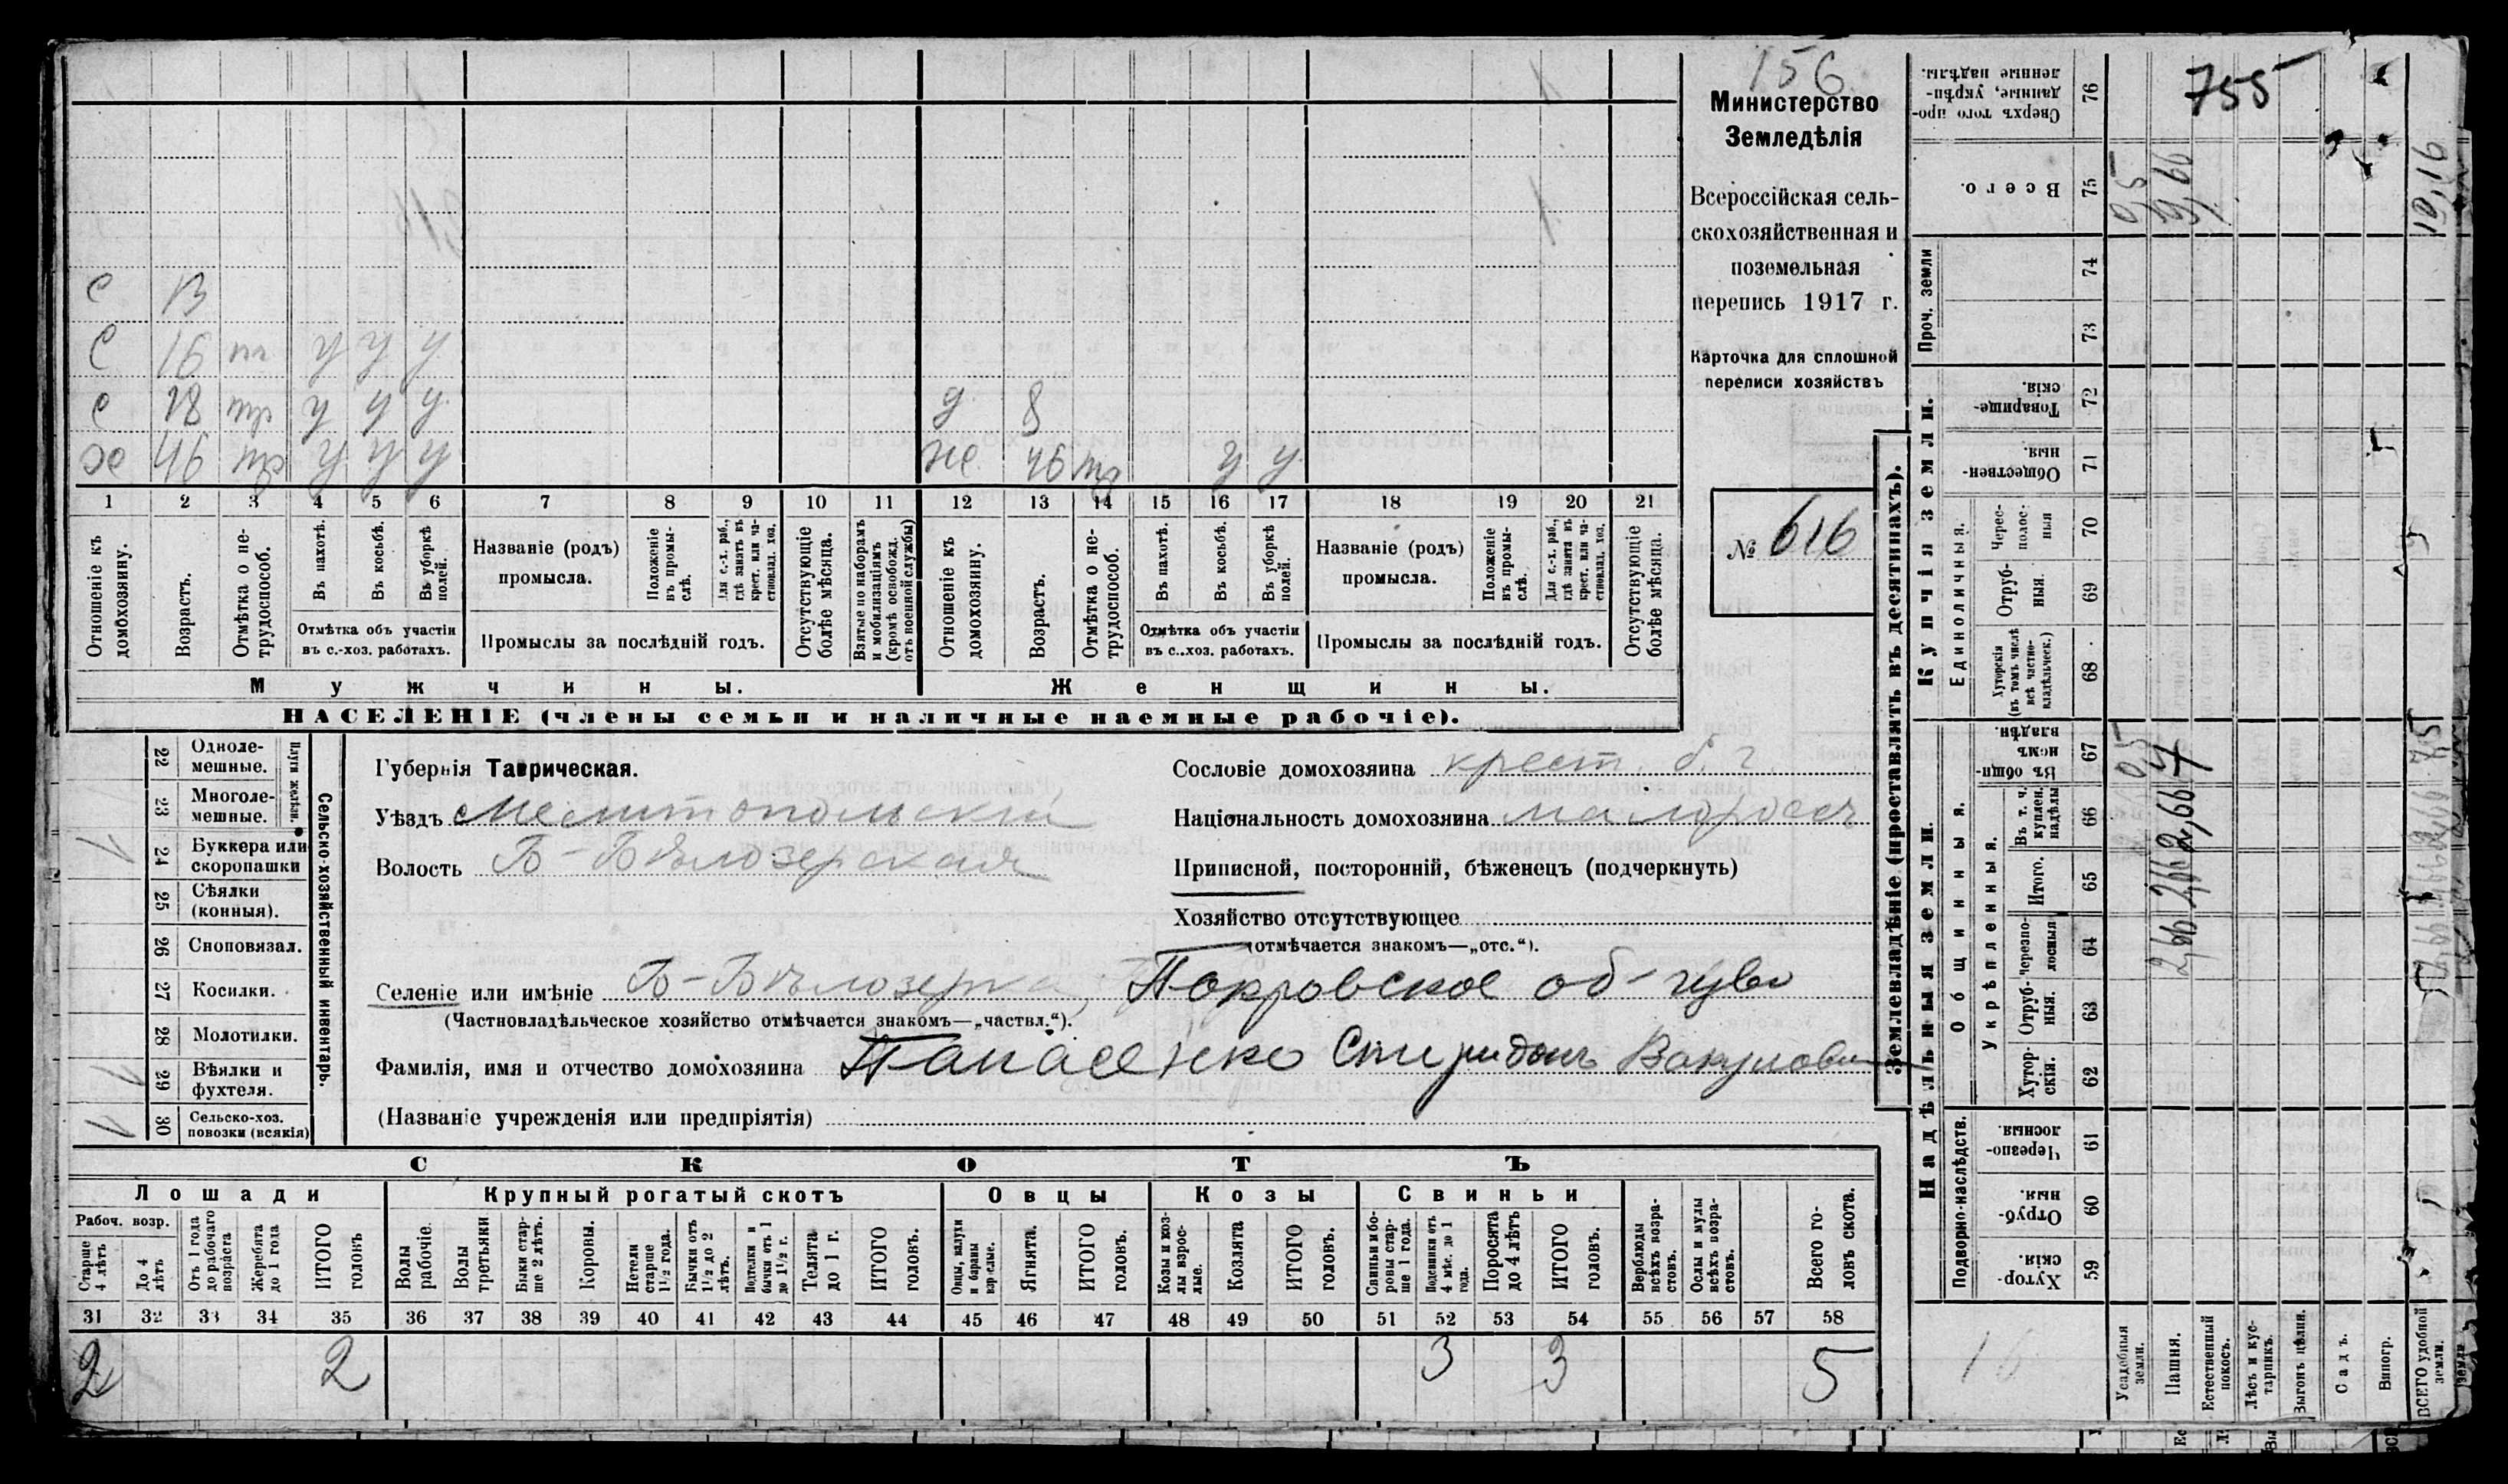 156
Министерство
Земледѣлія
Всероссійская сель-
скохозяйственная и
поземельная
перепись 1917 г.
Карточка для сплошной
переписи хозяйствъ
№ 616
с 13
с 16 у у у
с 18 у у у д 8
хо 46 у у у же 46 у у
1 2 3 4 5 6 7 8 9 10 11 12 13 14 15 16 17 18 19 20 21
Отношеніе къ домохозяину.
Возрастъ.
Отмѣтка о не-трудоспособ.
Въ пахотѣ.
Въ косьбѣ.
Въ уборкѣ полей.
Отмѣтка объ участіи
въ с.-хоз. работахъ.
Названіе (родъ)
промысла.
Положеніе въ промы-слѣ.
Для с.-х. раб., гдѣ занятъ въ крест. или ча-стновлад. хоз.
Промыслы за послѣдній годъ.
Отсутствующіе болѣе мѣсяца.
Взятые по наборамъ и мобилизаціямъ (кромѣ освобожд. отъ военной службы)
Отношеніе къ домохозяину.
Возрастъ.
Отмѣтка о не-трудоспособ.
Въ пахотѣ.
Въ косьбѣ.
Въ уборкѣ полей.
Отмѣтка объ участіи
въ с..хоз. работахъ.
Названіе (родъ)
промысла.
Положеніе въ промы-слѣ.
Для с.-х. раб., гдѣ занята въ крест. или ча-стновлад. хоз.
Промыслы за послѣдній годъ.
Отсутствующіе болѣе мѣсяца.
Мужчины. Женщины.
НАСЕЛЕНІЕ (члены семьи и наличные наемные рабочіе).
Сельско-хозяйственный инвентарь.
Плуги желѣзн.
22 Одноле-
мешные.
23 Многоле-
мешные.
1 24 Буккера или
скоропашки
25 Сѣялки
(конныя).
26 Сноповязал.
27 Косилки.
28 Молотилки.
1 29 Вѣялки и
фухтеля.
1 30 Сельско-хоз.
повозки (всякія)
Губернія Таврическая.
Уѣздъ Мелитопольскій
Волость Б-Бѣлозерская
Сословіе домохозяина крест. б. г.
Національность домохозяина малороссъ
Приписной, посторонній, бѣженецъ (подчеркнуть)
Хозяйство отсутствующее
(отмѣчается знакомъ—„отс.“).
Селеніе или имѣніе Б-Бѣлозерка, Покровское об-
(Частновладѣльческое хозяйство отмѣчается знакомъ—„частвл.“).
Фамилія, имя и отчество домохозяина Панасенко Спиридонъ Вакулович
(Названіе учрежденія или предпріятія)
СКОТЪ
Лошади Крупный рогатый скотъ Овцы Козы Свиньи
Рабоч. возр.
Старше 4 лѣтъ
До 4 лѣтъ
Отъ 1 года до рабочаго возраста
Жеребята до 1 года
ИТОГО головъ
Волы рабочіе.
Волы третьяки
Быки стар-ше 2 лѣтъ.
Коровы.
Нетели старше 1½ года.
Бычки отъ 1½ до 2 лѣтъ.
Подтелки и бычки отъ 1 до 1½ г.
Телята до 1 г.
ИТОГО головъ.
Овцы, валухи и бараны взрослые.
Ягнята.
ИТОГО головъ.
Козы и коз-лы взрос-лые.
Козлята
ИТОГО головъ.
Свиньи и бо-ровы стар-ше 1 года.
Подсвинки отъ 4 мѣс. до 1 года.
Поросята до 4 лѣтъ
ИТОГО головъ.
Верблюды всѣхъ возра-стовъ.
Ослы и мулы всѣхъ возра-стовъ.
Всего го-ловъ скота.
31 32 33 34 35 36 37 38 39 40 41 42 43 44 45 46 47 48 49 50 51 52 53 54 55 56 57 58
2 2 3 3 5
Землевладѣніе (проставлять въ десятинахъ).
755
Сверхъ того про-данные, укрѣп-ленные надѣлы. 76
Всего. 75
Купчія земли.
Проч. земли
74
73
Товарище-скія. 72
Обществен-ныя. 71
Единоличныя.
Черес-полос-ныя 70
Отруб-ныя. 69
Хуторскія (въ томъ числѣ всѣ частно-владѣльческ.) 68
Надѣльныя земли.
Общинныя.
Въ общи-номъ владѣн. 67
Укрѣпленныя.
Въ т. ч. куплен. надѣлы 66
Итого. 65
Черезпо-лосныя 64
Отруб-ныя. 63
Хутор-скія. 62
Подворно-наслѣдств.
Черезпо-лосныя 61
Отруб-ныя. 60
Хутор-скія. 59
Усадебныя земли.
Пашня.
Естественный покосъ.
Лѣсъ и кус-тарникъ.
Выгонъ цѣлин.
Садъ.
Виногр.
ВСЕГО удобной земли.